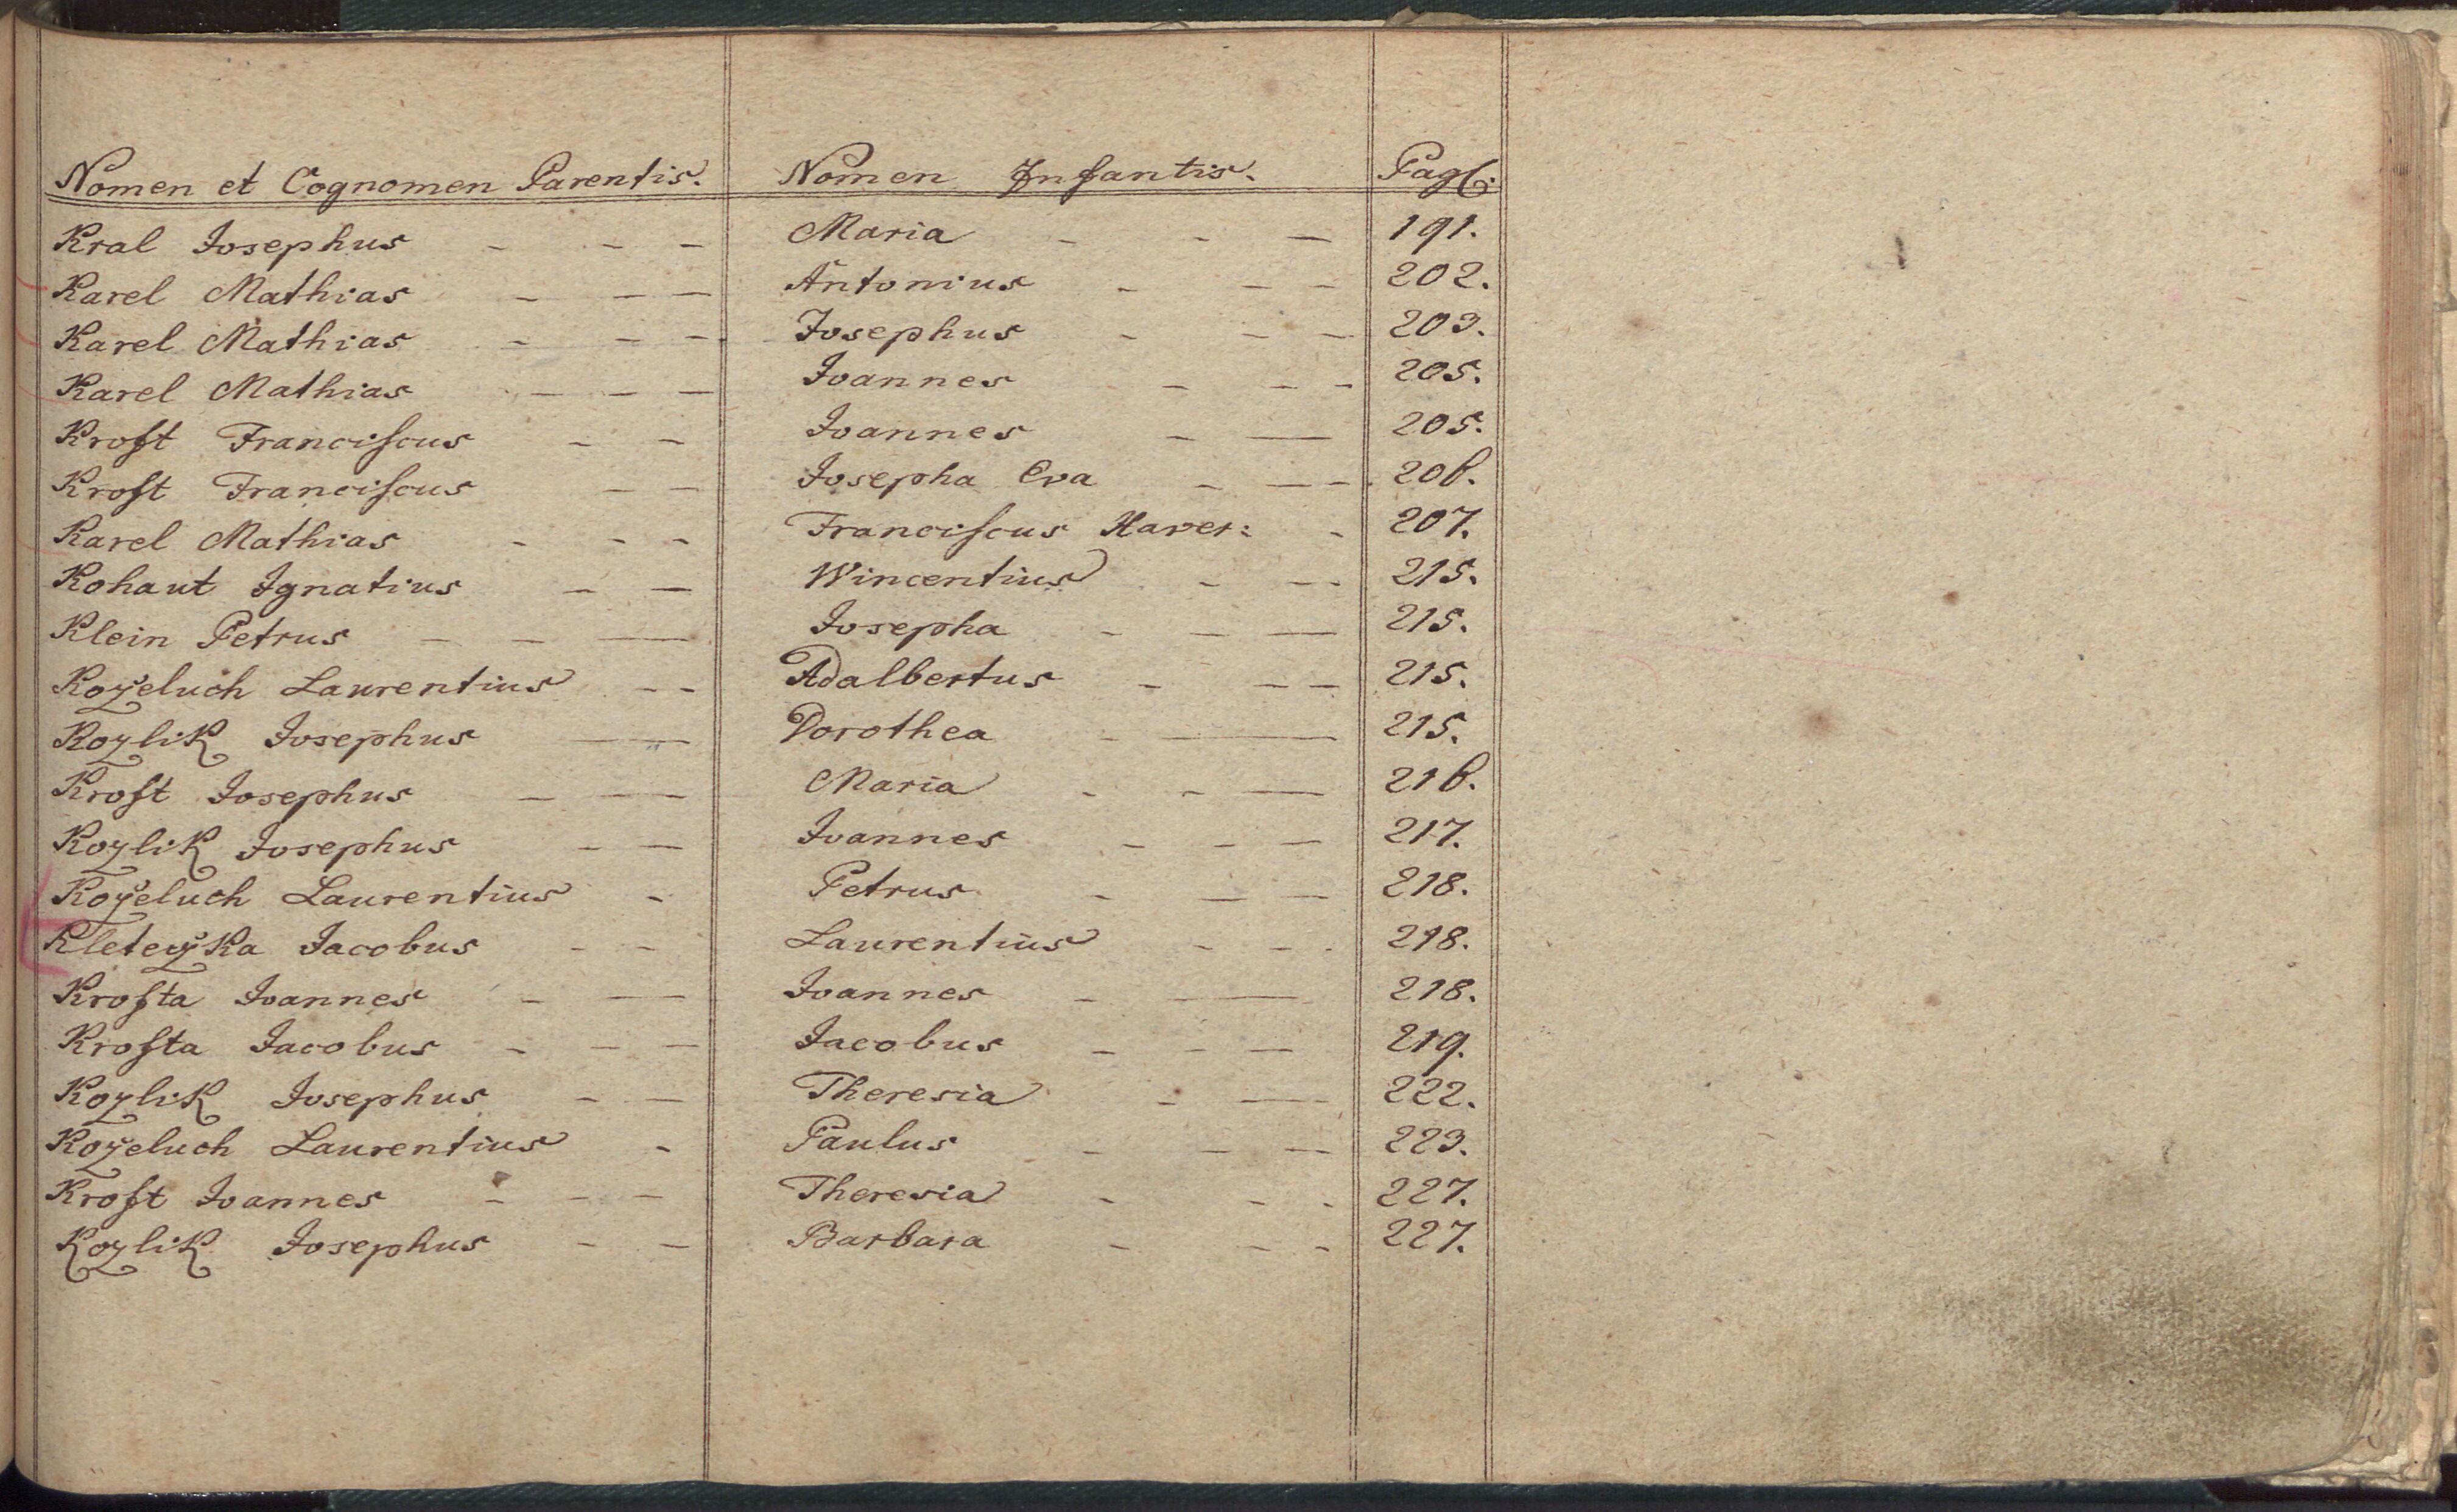 Nomen et Cognomen Parentis. Nomen Infantis. Pag:
Kral Josephus - - - Maria - - - 191.
Karel Mathias - - - Antonius - - - 202.
Karel Mathias - - - Josephus - - - 203.
Karel Mathias - - - Joannes - - - 205.
Kroſt Franciſcus - - Joannes - - 205.
Kroſt Franciſcus - - Josepha Eva - - - 206.
Karel Mathias - - - Franciſcus Xaver: - 207.
Kohaut Ignatius - - Wincentius - - - 215.
Klein Petrus - - - Josepha - - - 215.
Kozeluch Laurentius - - Adalbertus - - - 215.
Kozlik Josephus - Dorothea - - 215.
Kroſt Josephus - - Maria - - - 216.
Kozlik Josephus - - Joannes - - - 217.
Kozeluch Laurentius - Petrus - - - 218.
Kleteczka Jacobus - - Laurentius - - - 218.
Kroſta Joannes - - Joannes - - 218.
Kroſta Jacobus - - - Jacobus - - - 219.
Kozlik Josephus - - Theresia - - 222.
Kozeluch Laurentius - Paulus - - - 223.
Kroſt Joannes - - - Theresia - - - 227.
Kozlik Josephus - - Barbara - - - 227.